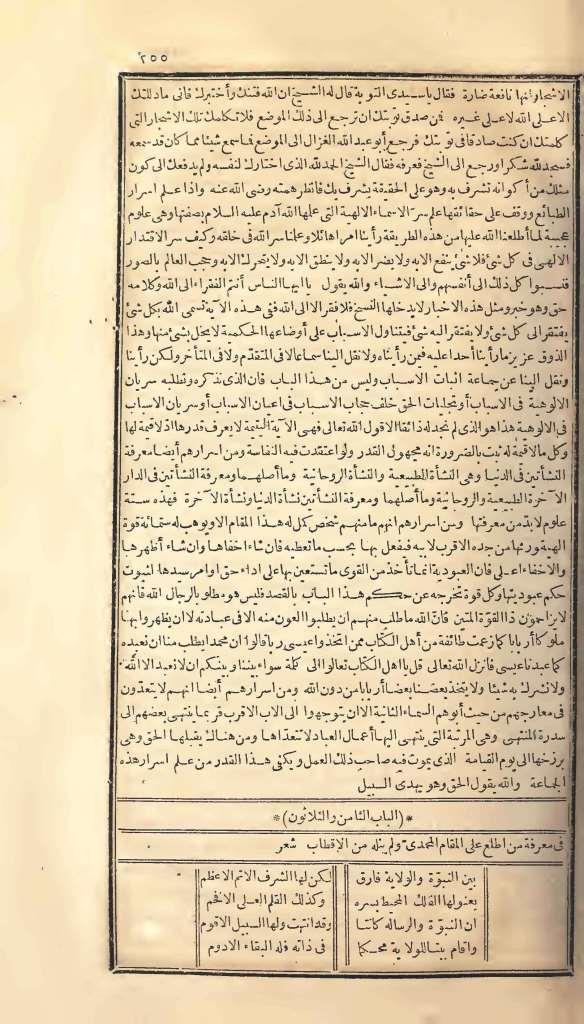 ٢٥٥
الاشجار انها نافعة ضارة فقال ياسيدى التوبة قال له الشيخ ان الله فتنك وأختبرك فانى مادللتك
الاعلى الله لاعلى غيره فمن صدق توبتك ان ترجع الى ذلك الموضع فلا تكلمك تلك الاشجار التى
كلمتك ان كنت صادقا فى توبتك فرجع أبو عبد الله الغزال الى الموضع فماسمع شيئا مما كان قد سمعه
فسجد لله شكرا ورجع الى الشيخ فعرفه فقال الشيخ الحمد لله الذى اختارك لنفسه ولم يدفعك الى كون
مثلك من أكوانه تشرف به وهو على الحقيقة يشرف بك فانظر همته رضى الله عنه واذا علم اسرار
الطبائع ووقف على حقائقها علم من الاسماء الالهية التى علمها الله آدم عليه السلام نصفها وهى علوم
عجيبة لما أطلعنا الله عليها من هذه الطريقة رأينا امرا هائلا وعلمنا سر الله فى خلقه وكيف سر الاقتدار
الالهى فى كل شئ فلا شئ ينفع الابه ولا يضر الابه ولا ينطق الابه ولا يتحرك الابه وحجب العالم بالصور
فنسبوا كل ذلك الى أنفسهم والى الاشياء والله يقول ياايها الناس أنتم الفقراء الى الله وكلامه
حق وهو خبر ومثل هذه الاخبار لايدخلها النسخ فلا فقر الا الى الله ففى هذه الآية تسمى الله بكل شئ
يفتقر الى كل شئ ولا يفتقر اليه شئ فيتناول الاسباب على أوضاعها الحكمية لايخل بشئ منها وهذا
الذوق عزيز مارأينا أحدا عليه فيمن رأيناه ولا نقل الينا سماعا لافى المتقدم ولا فى المتأخر ولكن رأينا
ونقل الينا عن جماعة اثبات الاسباب وليس من هذا الباب فان الذى نذكره ونطلبه سريان
الالوهية فى الاسباب أوتجليات الحق خلف حجاب الاسباب فى اعيان الاسباب أوسريان الاسباب
فى الالوهية هذا هو الذى لم نجد له ذائقا الاقول الله تعالى فهى الآية اليتيمة لايعرف قدرها اذ لاقيمة لها
وكل مالاقيمة له ثبت بالضرورة انه مجهول القدر ولو اعتقدت فيه النفاسة ومن اسرارهم أيضا معرفة
النشأتين فى الدنيا وهى النشأة الطبيعية والنشأة الروحانية وما أصلهما ومعرفة النشأتين فى الدار
الآخرة الطبيعية والروحانية وما أصلهما ومعرفة النشأتين نشأة الدنيا ونشأة الآخرة فهذه ستة
علوم لابد من معرفتها ومن اسرارهم انهم مامنهم شخص كمل له هذا المقام الاويوهب له ستمائة قوة
الهية ورثها من جده الاقرب لابيه فيفعل بها بحسب ماتعطيه فان شاء اخفاها وان شاء أظهرها
والاخفاء اعلى فان العبودية انما تأخذ من القوى ماتستعين بها على اداء حق اوامر سيدها لثبوت
حكم عبوديتها وكل قوة تخرجه عن حكم هذا الباب بالقصد فليس هو مطلوب الرجال الله فانهم
لايزاحمون ذا القوة المتين فان الله ماطلب منهم ان يطلبوا العون منه الافى عبادته لاان يظهروا بها
ملوكا أربابا كما زعمت طائفة من أهل الكتاب ممن اتخذوا عيسى ربا قالوا ان محمدا يطلب منا ان نعبده
كما عبدنا عيسى فانزل الله تعالى قل يا اهل الكتاب تعالوا الى كلمة سواء بيننا وبينكم ان لا نعبد الا الله
ولا نشرك به شيئا ولا يتخذ بعضنا بعضا أربابا من دون الله ومن اسرارهم أيضا انهم لايتعدون
فى معارجهم من حيث أبوهم السماء الثانية الاان يتوجهوا الى الاب الاقرب فربما ينتهى بعضهم الى
سدرة المنتهى وهى المرتبة التى ينتهى اليها أعمال العباد لاتتعداها ومن هناك يقبلها الحق وهى
برزخها الى يوم القيامة الذى يموت فيه صاحب ذلك العمل ويكفى هذا القدر من علم اسرار هذه
الجماعة والله يقول الحق وهو يهدى السبيل
*(الباب الثامن والثلاثون)*
فى معرفة من اطلع على المقام المحمدى ولم ينله من الاقطاب شعر
بين النبوة والولاية فارق لكن لها الشرف الاتم الاعظم
يعنو لها الفلك المحيط بسره وكذلك القلم العلى الافخم
ان النبوة والرسالة كانتا وقد انتهت ولها السبيل الاقوم
واقام بيتا للولاية محكما فى ذاته فله البقاء الادوم